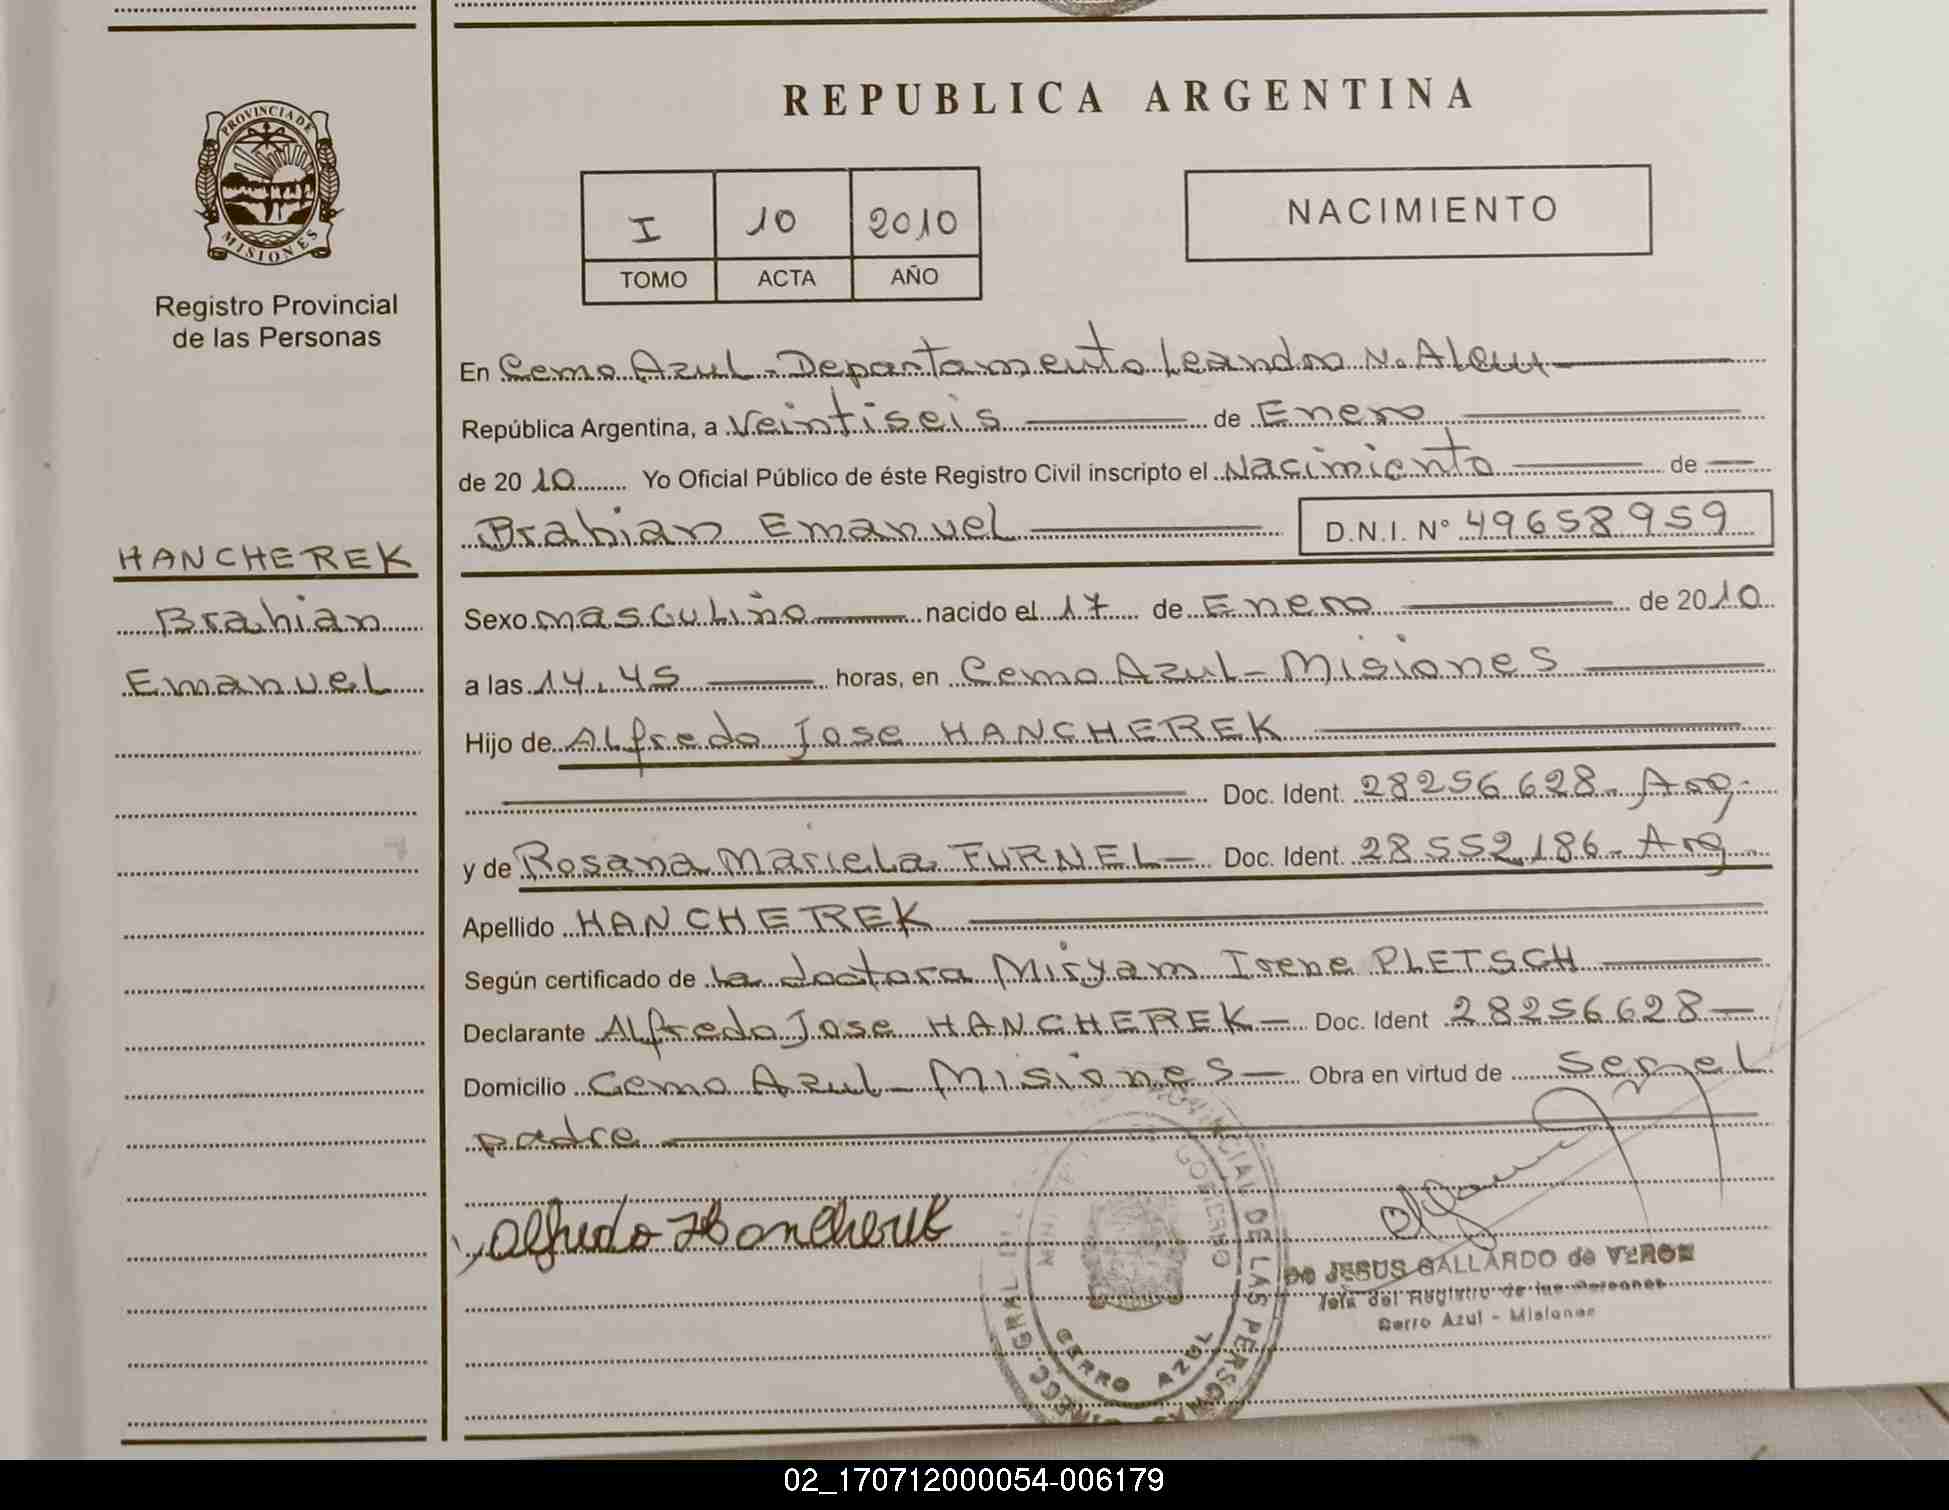 REPUBLICA ARGENTINA
PROVINCIA DE
MISIONES
Registro Provincial
de las Personas
I 10 2010
TOMO ACTA AÑO
NACIMIENTO
En Cerro Azul - Departamento Leandro N. Alem
República Argentina, a Veintiseis de Enero
de 20 10 Yo Oficial Público de éste Registro Civil inscripto el Nacimiento de
Brahian Emanuel D.N.I. N° 49658959
HANCHEREK
Brahian
Emanuel
Sexo masculino nacido el 17 de Enero de 2010
a las 14.45 horas, en Cerro Azul - Misiones
Hijo de Alfredo Jose HANCHEREK
Doc. Ident. 28256628 - Arg.
y de Rosana Mariela FURNEL - Doc. Ident. 28552186 - Arg
Apellido HANCHEREK
Según certificado de la doctora Miryam Irene PLETSCH
Declarante Alfredo Jose HANCHEREK - Doc. Ident 28256628 -
Domicilio Cerro Azul - Misiones - Obra en virtud de ser el
padre
Alfredo Hancherek
JESUS GALLARDO de VERON
Jefa del Registro de las Personas
Cerro Azul - Misiones
GOBIERNO
DE LAS PERSONAS
CERRO AZUL
02_170712000054-006179